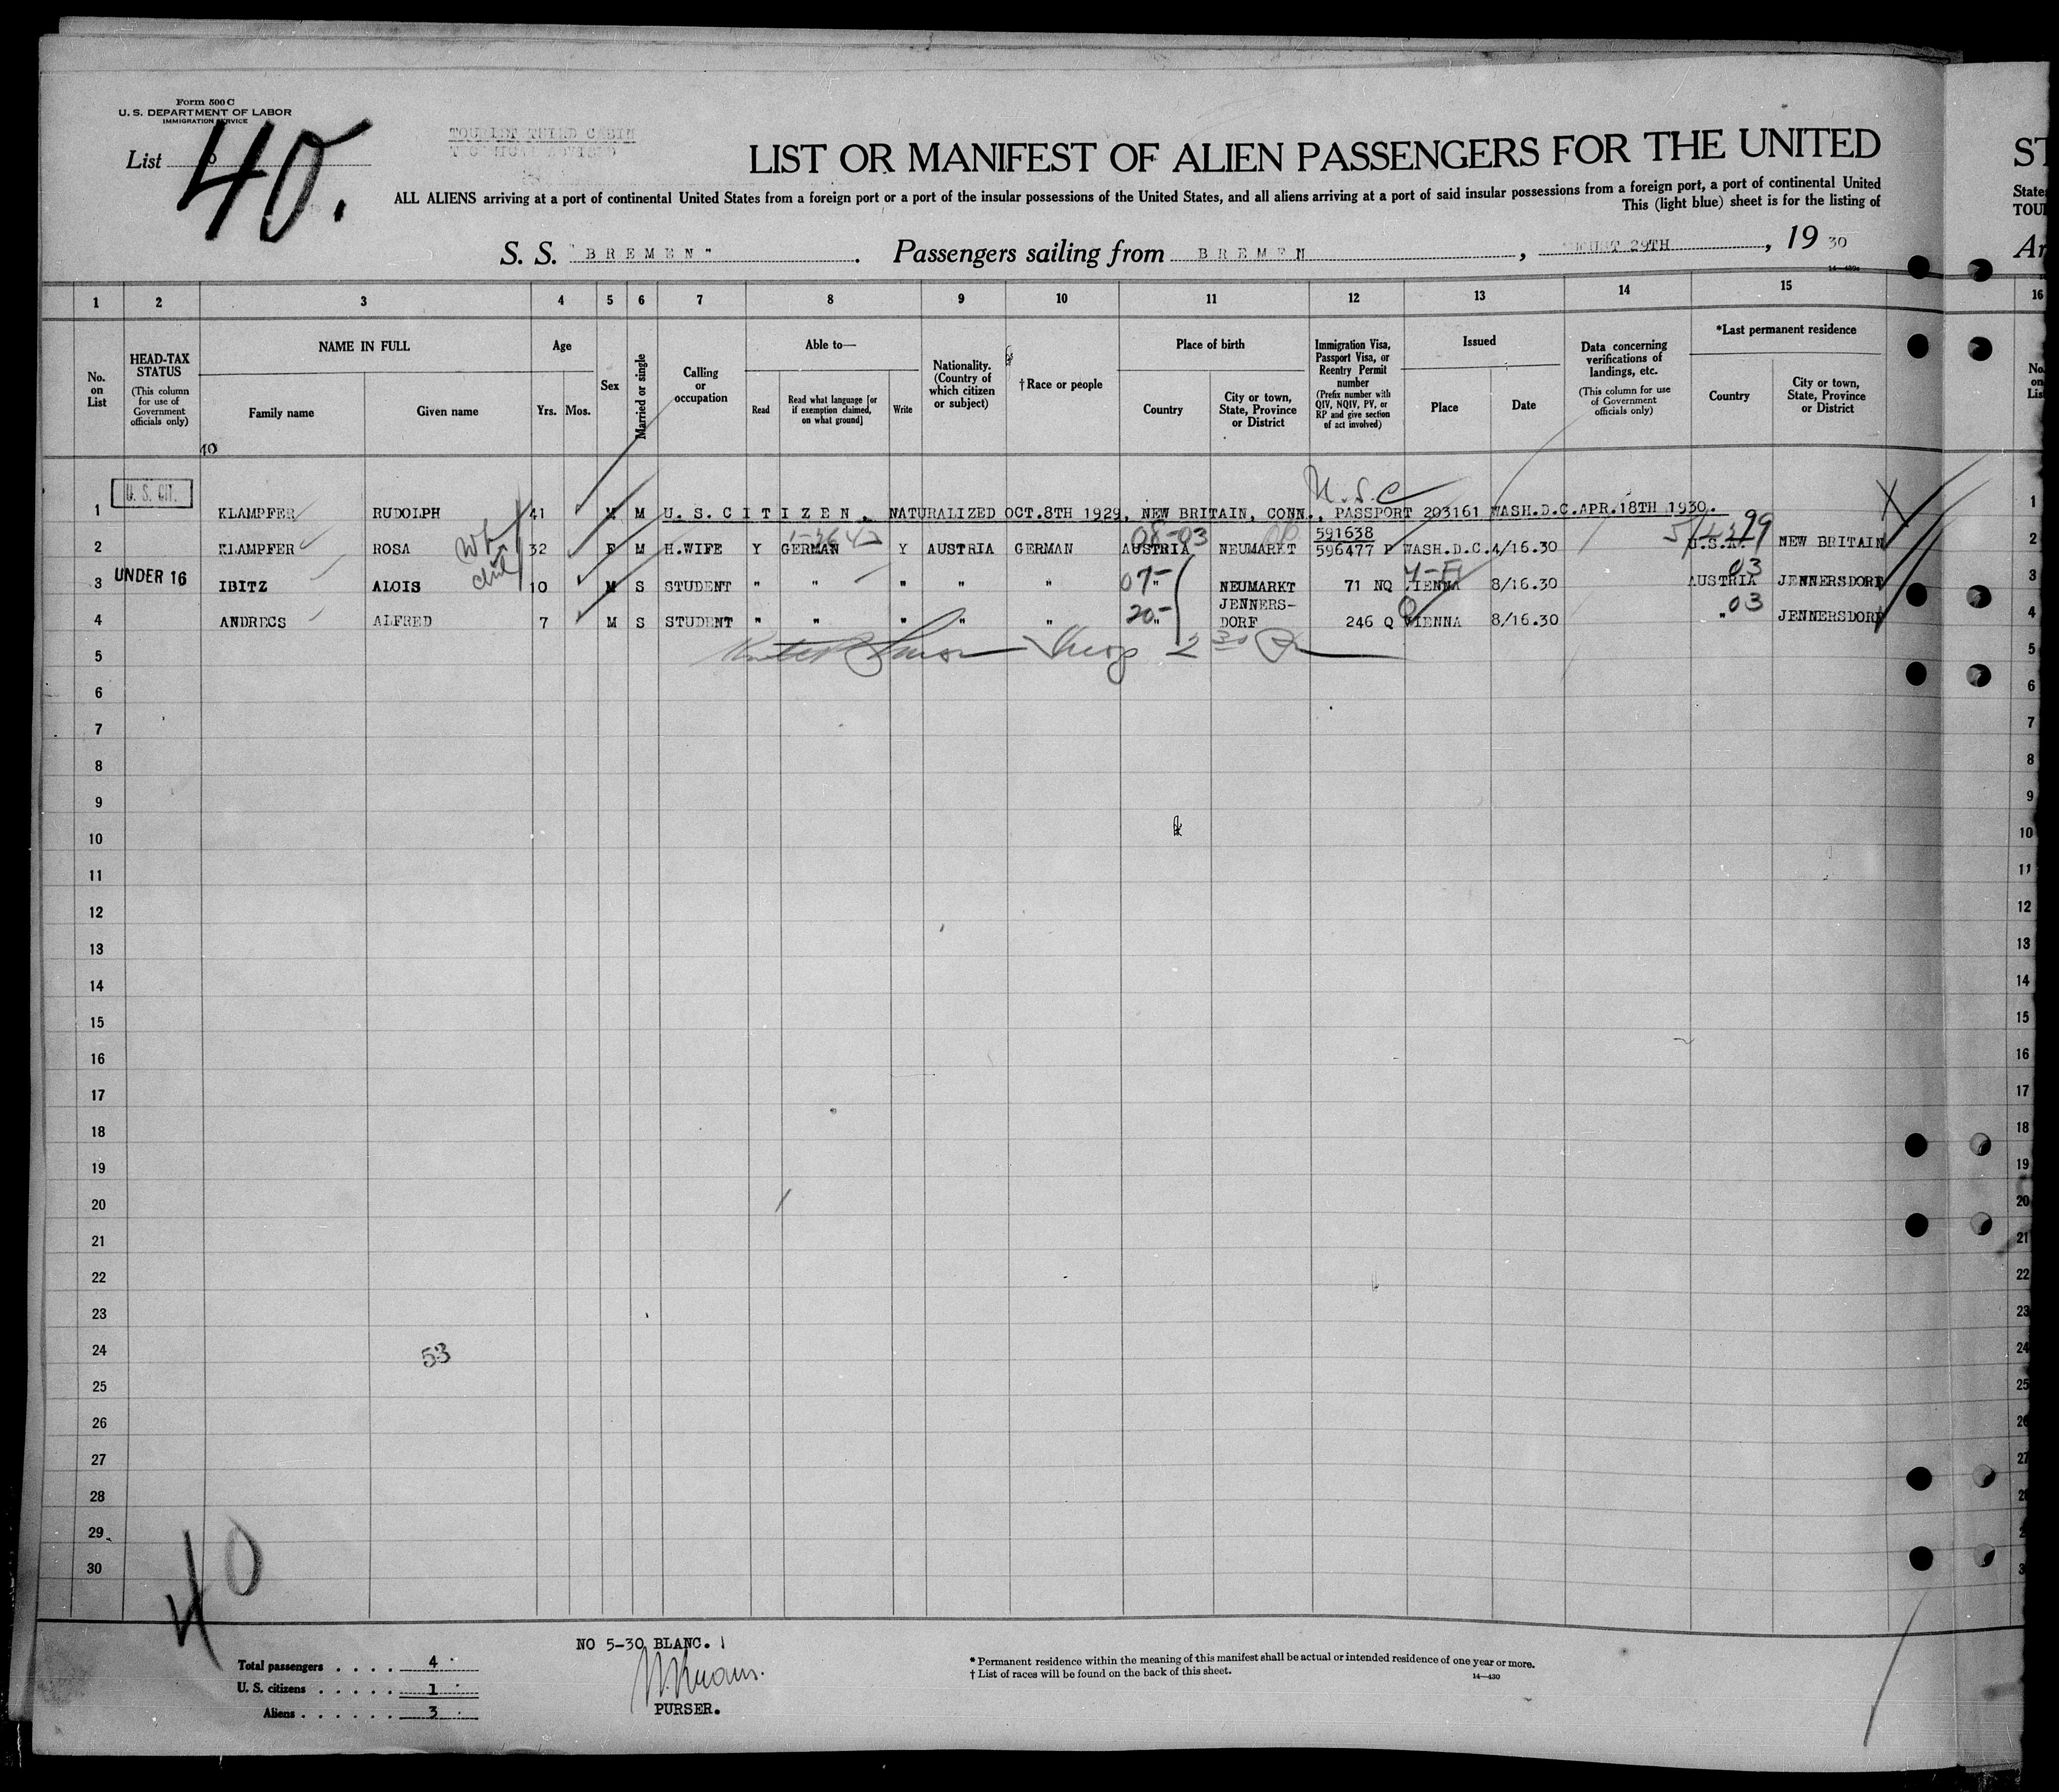 Form 500 C
U. S. DEPARTMENT OF LABOR
IMMIGRATION SERVICE
List
40.
TOURIST THIRD CABIN
LIST OR MANIFEST OF ALIEN PASSENGERS FOR THE UNITED
ALL ALIENS arriving at a port of continental United States from a foreign port or a port of the insular possessions of the United States, and all aliens arriving at a port of said insular possessions from a foreign port, a port of continental United
This (light blue) sheet is for the listing of
S. S. "BREMEN". Passengers sailing from BREMEN, AUGUST 29TH, 19 30
14—430
ST
States
TOUR
Ar
1 2 3 4 5 6 7 8 9 10 11 12 13 14 15 16
No. on List
HEAD-TAX STATUS
(This column for use of Government officials only)
NAME IN FULL
Family name
Given name
Age
Yrs. Mos.
Sex
Married or single
Calling or occupation
Able to—
Read
Read what language [or if exemption claimed, on what ground]
Write
Nationality. (Country of which citizen or subject)
†Race or people
Place of birth
Country
City or town, State, Province or District
Immigration Visa, Passport Visa, or Reentry Permit number
(Prefix number with QIV, NQIV, PV, or RP and give section of act involved)
Issued
Place
Date
Data concerning verifications of landings, etc.
(This column for use of Government officials only)
*Last permanent residence
Country
City or town, State, Province or District
No. on List
10
U. S. CIT.
U.S.C
1 KLAMPFER RUDOLPH 41 M M U. S. CITIZEN, NATURALIZED OCT.8TH 1929, NEW BRITAIN, CONN., PASSPORT 203161 WASH.D.C.APR.18TH 1930. 1
08-03 591638 99
2 KLAMPFER ROSA 32 F M H.WIFE Y GERMAN Y AUSTRIA GERMAN AUSTRIA NEUMARKT 596477 P WASH.D.C.4/16.30 U.S.A. NEW BRITAIN 2
UNDER 16 07- 03
3 IBITZ ALOIS 10 M S STUDENT " " " " " " NEUMARKT 71 NQ VIENNA 8/16.30 AUSTRIA JENNERSDORF 3
20- JENNERS- Q 03
4 ANDRECS ALFRED 7 M S STUDENT " " " " " " DORF 246 Q VIENNA 8/16.30 " JENNERSDORF 4
5 5
6 6
7 7
8 8
9 9
10 10
11 11
12 12
13 13
14 14
15 15
16 16
17 17
18 18
19 19
20 20
21 21
22 22
23 23
24 53 24
25 25
26 26
27 27
28 28
29
30
40
NO 5-30 BLANC.
Total passengers . . . . 4
U. S. citizens . . . . . 1
Aliens . . . . . . 3
PURSER.
* Permanent residence within the meaning of this manifest shall be actual or intended residence of one year or more.
† List of races will be found on the back of this sheet.
14—430